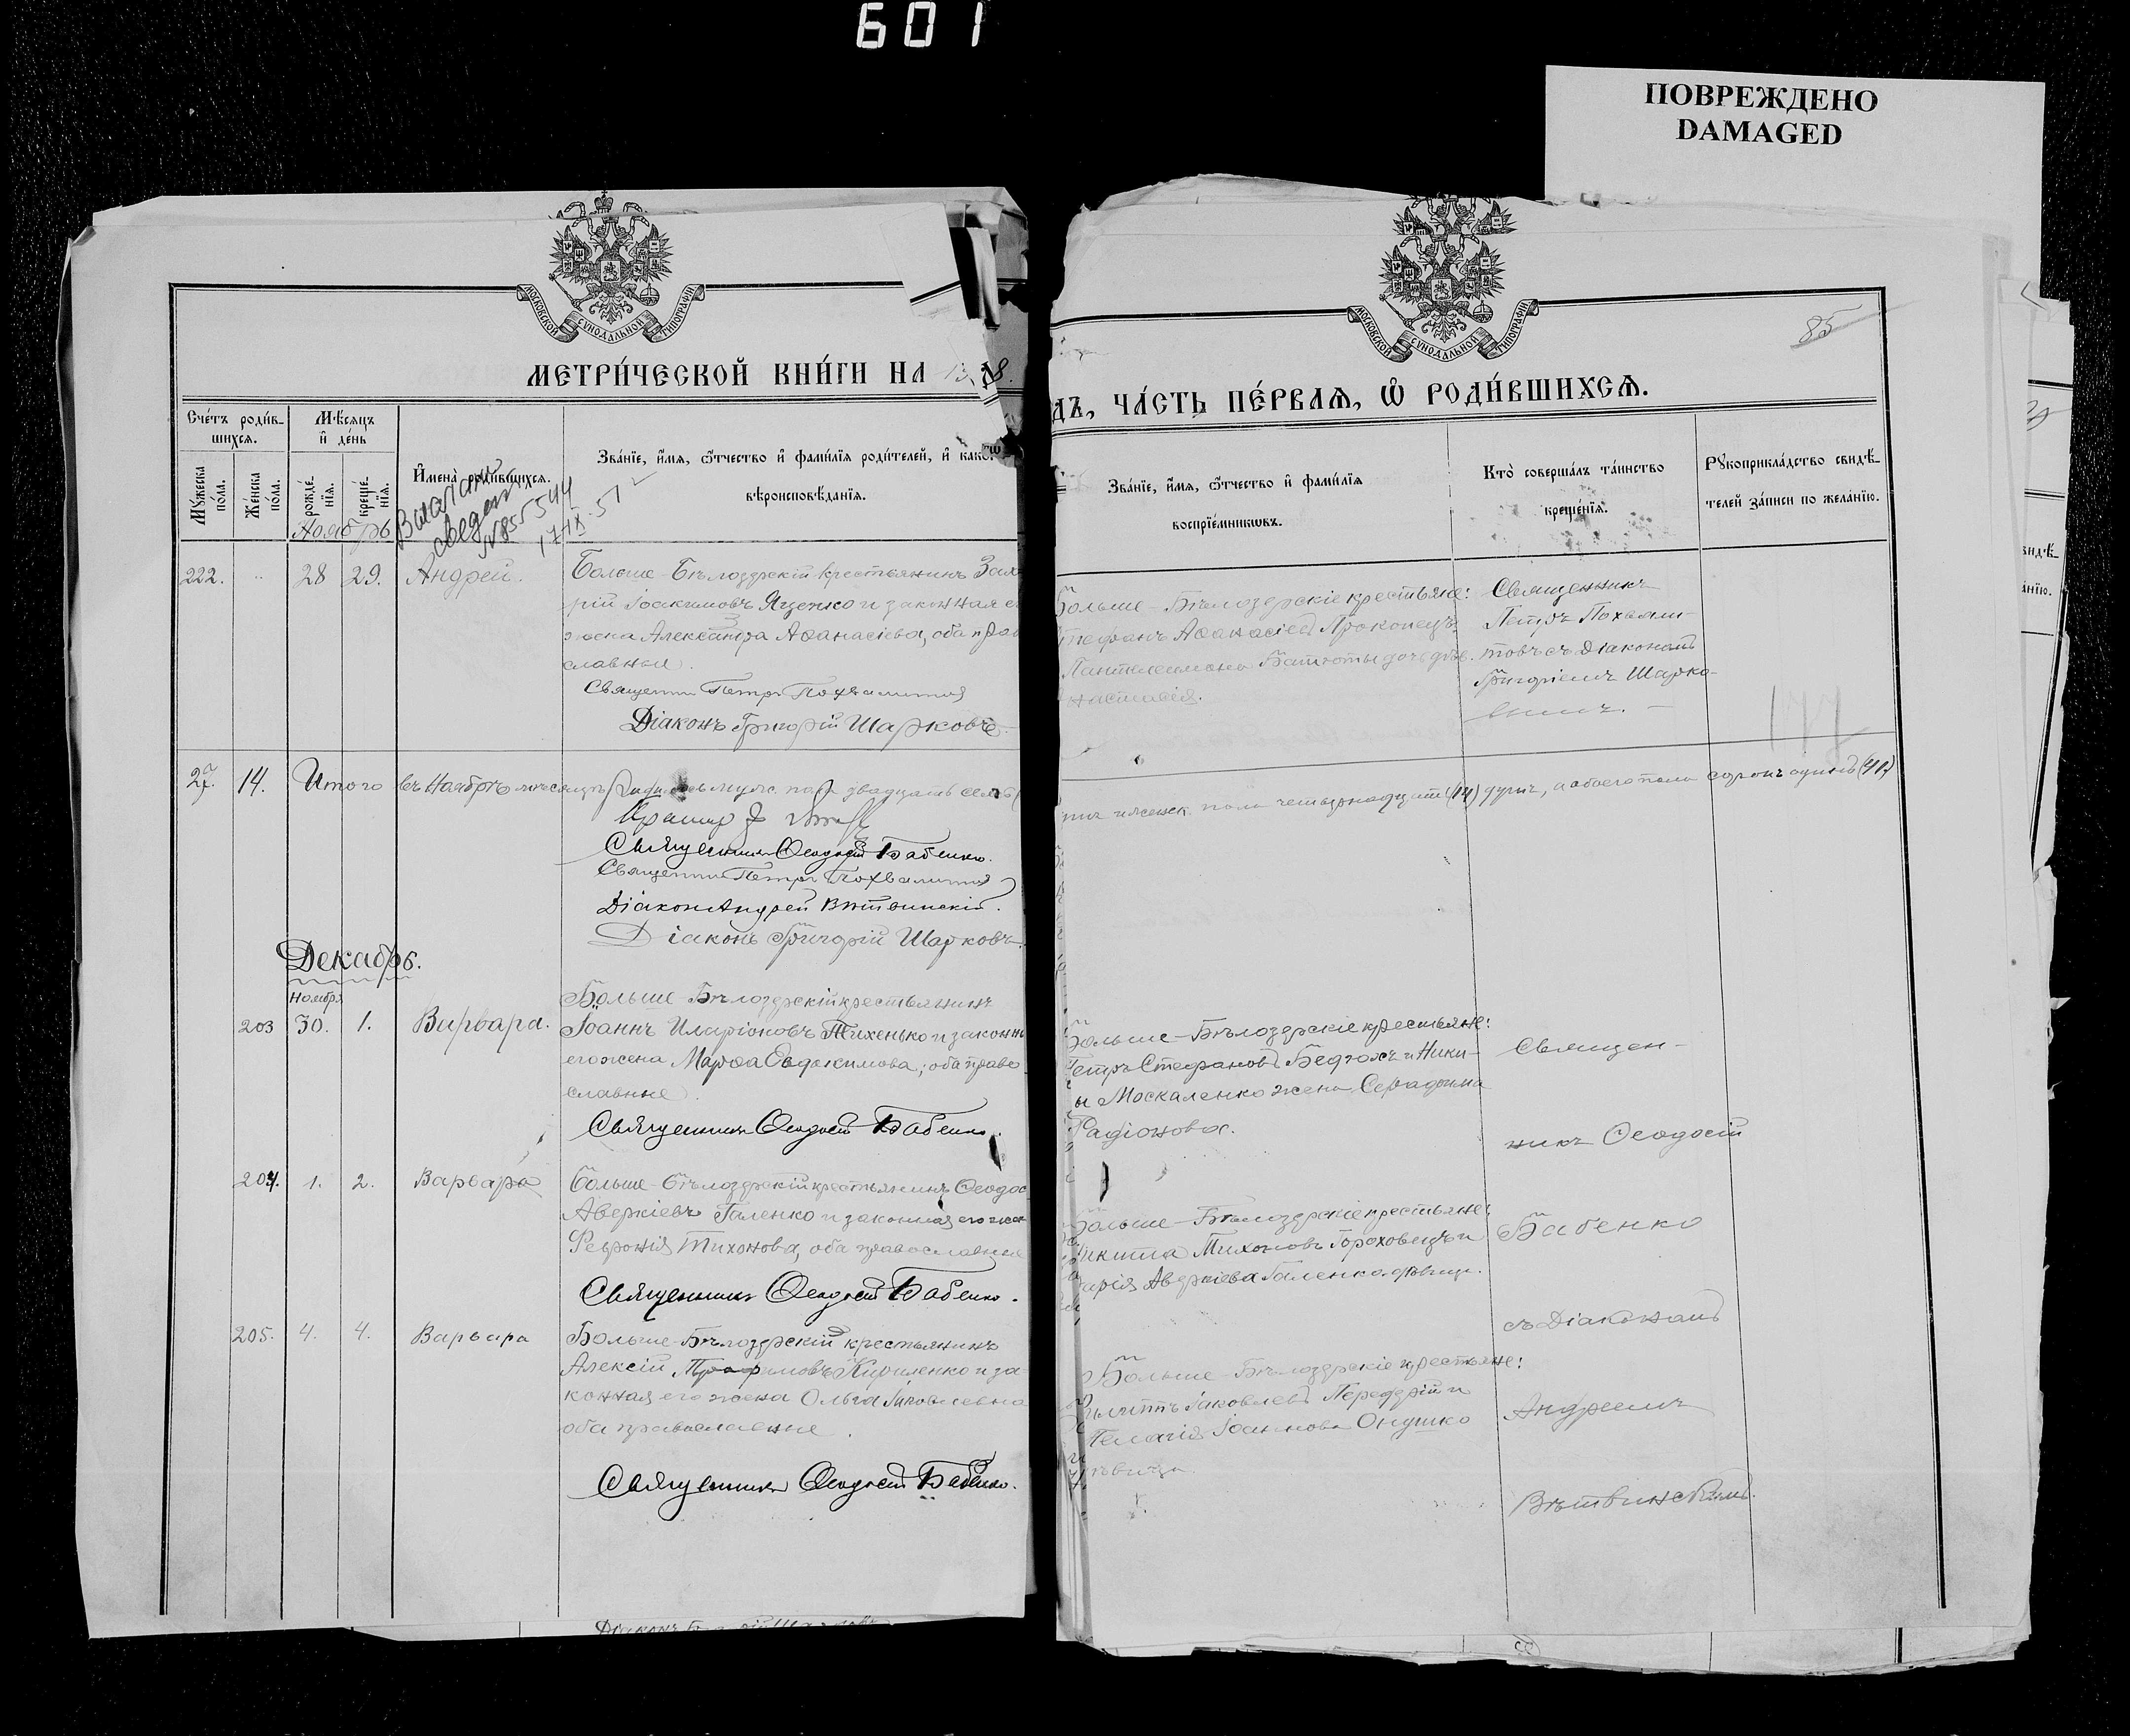 601
ПОВРЕЖДЕНО
DAMAGED
МОСКОВСКОЙ СѴНОДАЛЬНОЙ ТИПОГРАФІИ
МОСКОВСКОЙ СѴНОДАЛЬНОЙ ТИПОГРАФІИ
85
МЕТРИ́ЧЕСКОЙ КНИ́ГИ НА
ДЪ, ЧА́СТЬ ПЕ́РВАѦ, Ѡ҆ РОДИ́ВШИХСѦ.
Сче́тъ роди́в-
шихсѧ.
Мѣ́сѧцъ
и҆ де́нь
Мꙋ́жеска по́ла.
Же́нска по́ла.
рожде́нїѧ.
креще́нїѧ.
И҆мена̀ роди́вшихсѧ.
Зва́нїе, и҆́мѧ, ѻ҆́тчество и҆ фами́лїѧ роди́телей, и҆ како́гѡ
вѣроисповѣ́данїѧ.
Зва́нїе, и҆́мѧ, ѻ҆́тчество и҆ фами́лїѧ
воспрїе́мникѡвъ.
Кто̀ соверша́лъ та́инство
креще́нїѧ.
Рꙋкоприкла́дство свидѣ́-
телей за́писи по жела́нїю.
Ноябрь
17 IX 51
222. 28 29. Андрей.
Больше-Бѣлозерскій крестьянинъ Заха
рій Іоакимовъ Яценко и законная е
жена Александра Аѳанасіева, оба право
славные.
Священникъ Петръ Похвалитовъ
Діаконъ Григорій Шарковъ
Больше-Бѣлозерскіе крестьяне:
Стефанъ Аѳанасіевъ Прокопецъ
Пантелеимона дочь дѣв.
настасія.
Священникъ
Петръ Похвали-
товъ съ Діакономъ
Григоріемъ Шарко-
вымъ.
27. 14. Итого въ Ноябрѣ мѣсяцѣ родилось муж. пола двадцать семь (
женск. пола четырнадцать (14) душъ, а обоего пола сорокъ одинъ (41)
Священникъ Ѳеодосій Бабенко.
Священникъ Петръ Похвалитовъ
Діаконъ Андрей Вѣтвинскій.
Діаконъ Григорій Шарковъ.
Декабрь.
Ноября
203 30. 1. Варвара.
Больше-Бѣлозерскій крестьянинъ
Іоаннъ Иларіоновъ Тихенько и законн
его жена Марѳа Евдокимова, оба право
славные.
Священникъ Ѳеодосій Бабенко.
Больше-Бѣлозерскіе крестьяне:
Петръ Стефановъ и Ники-
ы Москаленко жена Серафима
Радіонова.
Священ-
никъ Ѳеодосій
204. 1. 2. Варвара
Больше-Бѣлозерскій крестьянинъ Ѳеодос
Аверкіевъ Галенко и законная его жен
Февронія Тихонова, оба православные
Священникъ Ѳеодосій Бабенко.
Больше-Бѣлозерскіе крестьяне:
икита Тихоновъ Гороховецъ и
арія Аверкіева Галенко дѣвица.
Бабенко
съ Діакономъ
205. 4. 4. Варвара
Больше-Бѣлозерскій крестьянинъ
Алексій Трофимовъ Кириленко и за-
конная его жена Ольга Яковлевна
оба православные.
Священникъ Ѳеодосій Бабенко.
Больше-Бѣлозерскіе крестьяне:
Яковлевъ Передерій и
Пелагія Іоаннова Онушко
ѣвица
Андреемъ
Вѣтвинскимъ.